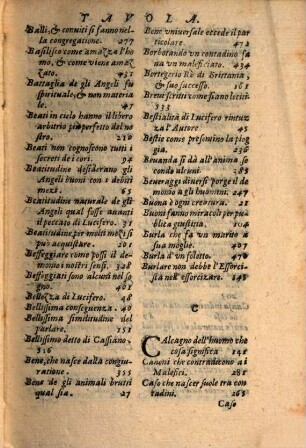 TAVOLA.
Balli, & conuiti si fanno nel-
la congregatione. 277
Basilisco come amazza l'ho
mo, & come viene amaz-
zato. 431
Battaglia de gli Angeli fu
spirituale, & non materia
le. 47
Beati in cielo hanno il libero
arbitrio piu perfetto del no
stro. 210
Beati non cognoscono tutti i
secreti de i cori. 94
Beatitudine desiderano gli
Angeli buoni con i debiti
mezi. 65
Beatitudine naturale de gli
Angeli qual fosse auanti
il peccato di Lucifero. 37
Beatitudine, per molti mezi si
può acquistare. 201
Beffeggiare come possi il de-
monio i nostri sensi. 328
Beffeggiati sono alcuni nel so
gno. 401
Bellezza di Lucifero. 48
Bellissima conseguenza. 40
Bellissima similitudine del
parlare. 155
Bellissimo detto di Cassiano.
316
Bene, che nasce dalla congiu-
ratione. 355
Bene de gli animali brutti
qual sia. 27
Bene vniuersale eccede il par
ticolare. 472
Borbotando vn contadino fa
na vn maleficiato. 434
Bortegerio Rè di Brittania,
& suo successo. 161
Breue scritti come siano leciti
333
Bestialità di Lucifero rintuz
za l'Autore. 45
Bestie come presentino la piog
gia. 236
Beuanda si dà all'anima se-
condo alcuni. 283
Beueraggi diuersi porge il de
monio a gli huomini. 247
Buona è ogni creatura. 21
Buoni fanno miracoli per pu
blica giustitia. 194
Burla che fa vn marito a
sua moglie. 407
Burla d'vn soletto. 370
Burlare non debbe l'Essorci-
sta nell'essorcizare. 145
C
CAlcagno dell'huomo che
cosa significa 141
Canoni che contradicono a i
Malefici. 281
Caso che nascer suole tra con
tadini. 265
Caso